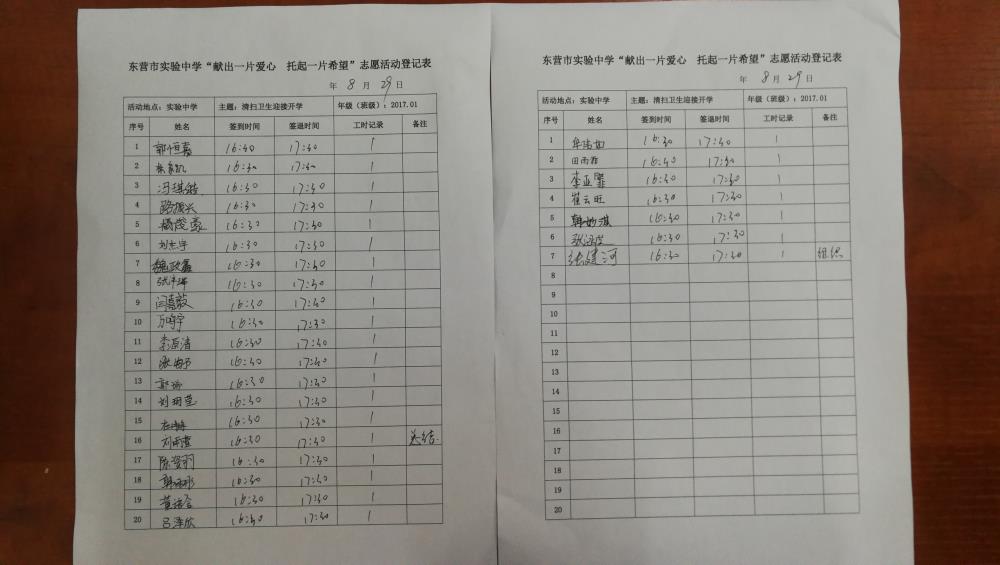 东营市实验中学“献出一片爱心 托起一片希望”志愿活动登记表
年 8 月 29 日
活动地点：实验中学 主题：清扫卫生迎接开学 年级（班级）：2017.01
序号 姓名 签到时间 签退时间 工时记录 备注
1 郭恒嘉 16:30 17:30 1
2 16:30 17:30 1
3 冯琪皓 16:30 17:30 1
4 路振兴 16:30 17:30 1
5 杨俊豪 16:30 17:30 1
6 刘志宇 16:30 17:30 1
7 魏政鑫 16:30 17:30 1
8 16:30 17:30 1
9 闫嘉毅 16:30 17:30 1
10 万鸣宇 16:30 17:30 1
11 李原清 16:30 17:30 1
12 16:30 17:30 1
13 16:30 17:30 1
14 刘玥莹 16:30 17:30 1
15 16:30 17:30 1
16 刘雨萱 16:30 17:30 1 总结
17 陈姿羽 16:30 17:30 1
18 16:30 17:30 1
19 16:30 17:30 1
20 吕泽欣 16:30 17:30 1
东营市实验中学“献出一片爱心 托起一片希望”志愿活动登记表
年 8 月 29 日
活动地点：实验中学 主题：清扫卫生迎接开学 年级（班级）：2017.01
序号 姓名 签到时间 签退时间 工时记录 备注
1 16:30 17:30 1
2 田雨霏 16:30 17:30 1
3 李亚璇 16:30 17:30 1
4 崔云旺 16:30 17:30 1
5 韩妙淇 16:30 17:30 1
6 16:30 17:30 1
7 张建河 16:30 17:30 1 组织
8
9
10
11
12
13
14
15
16
17
18
19
20